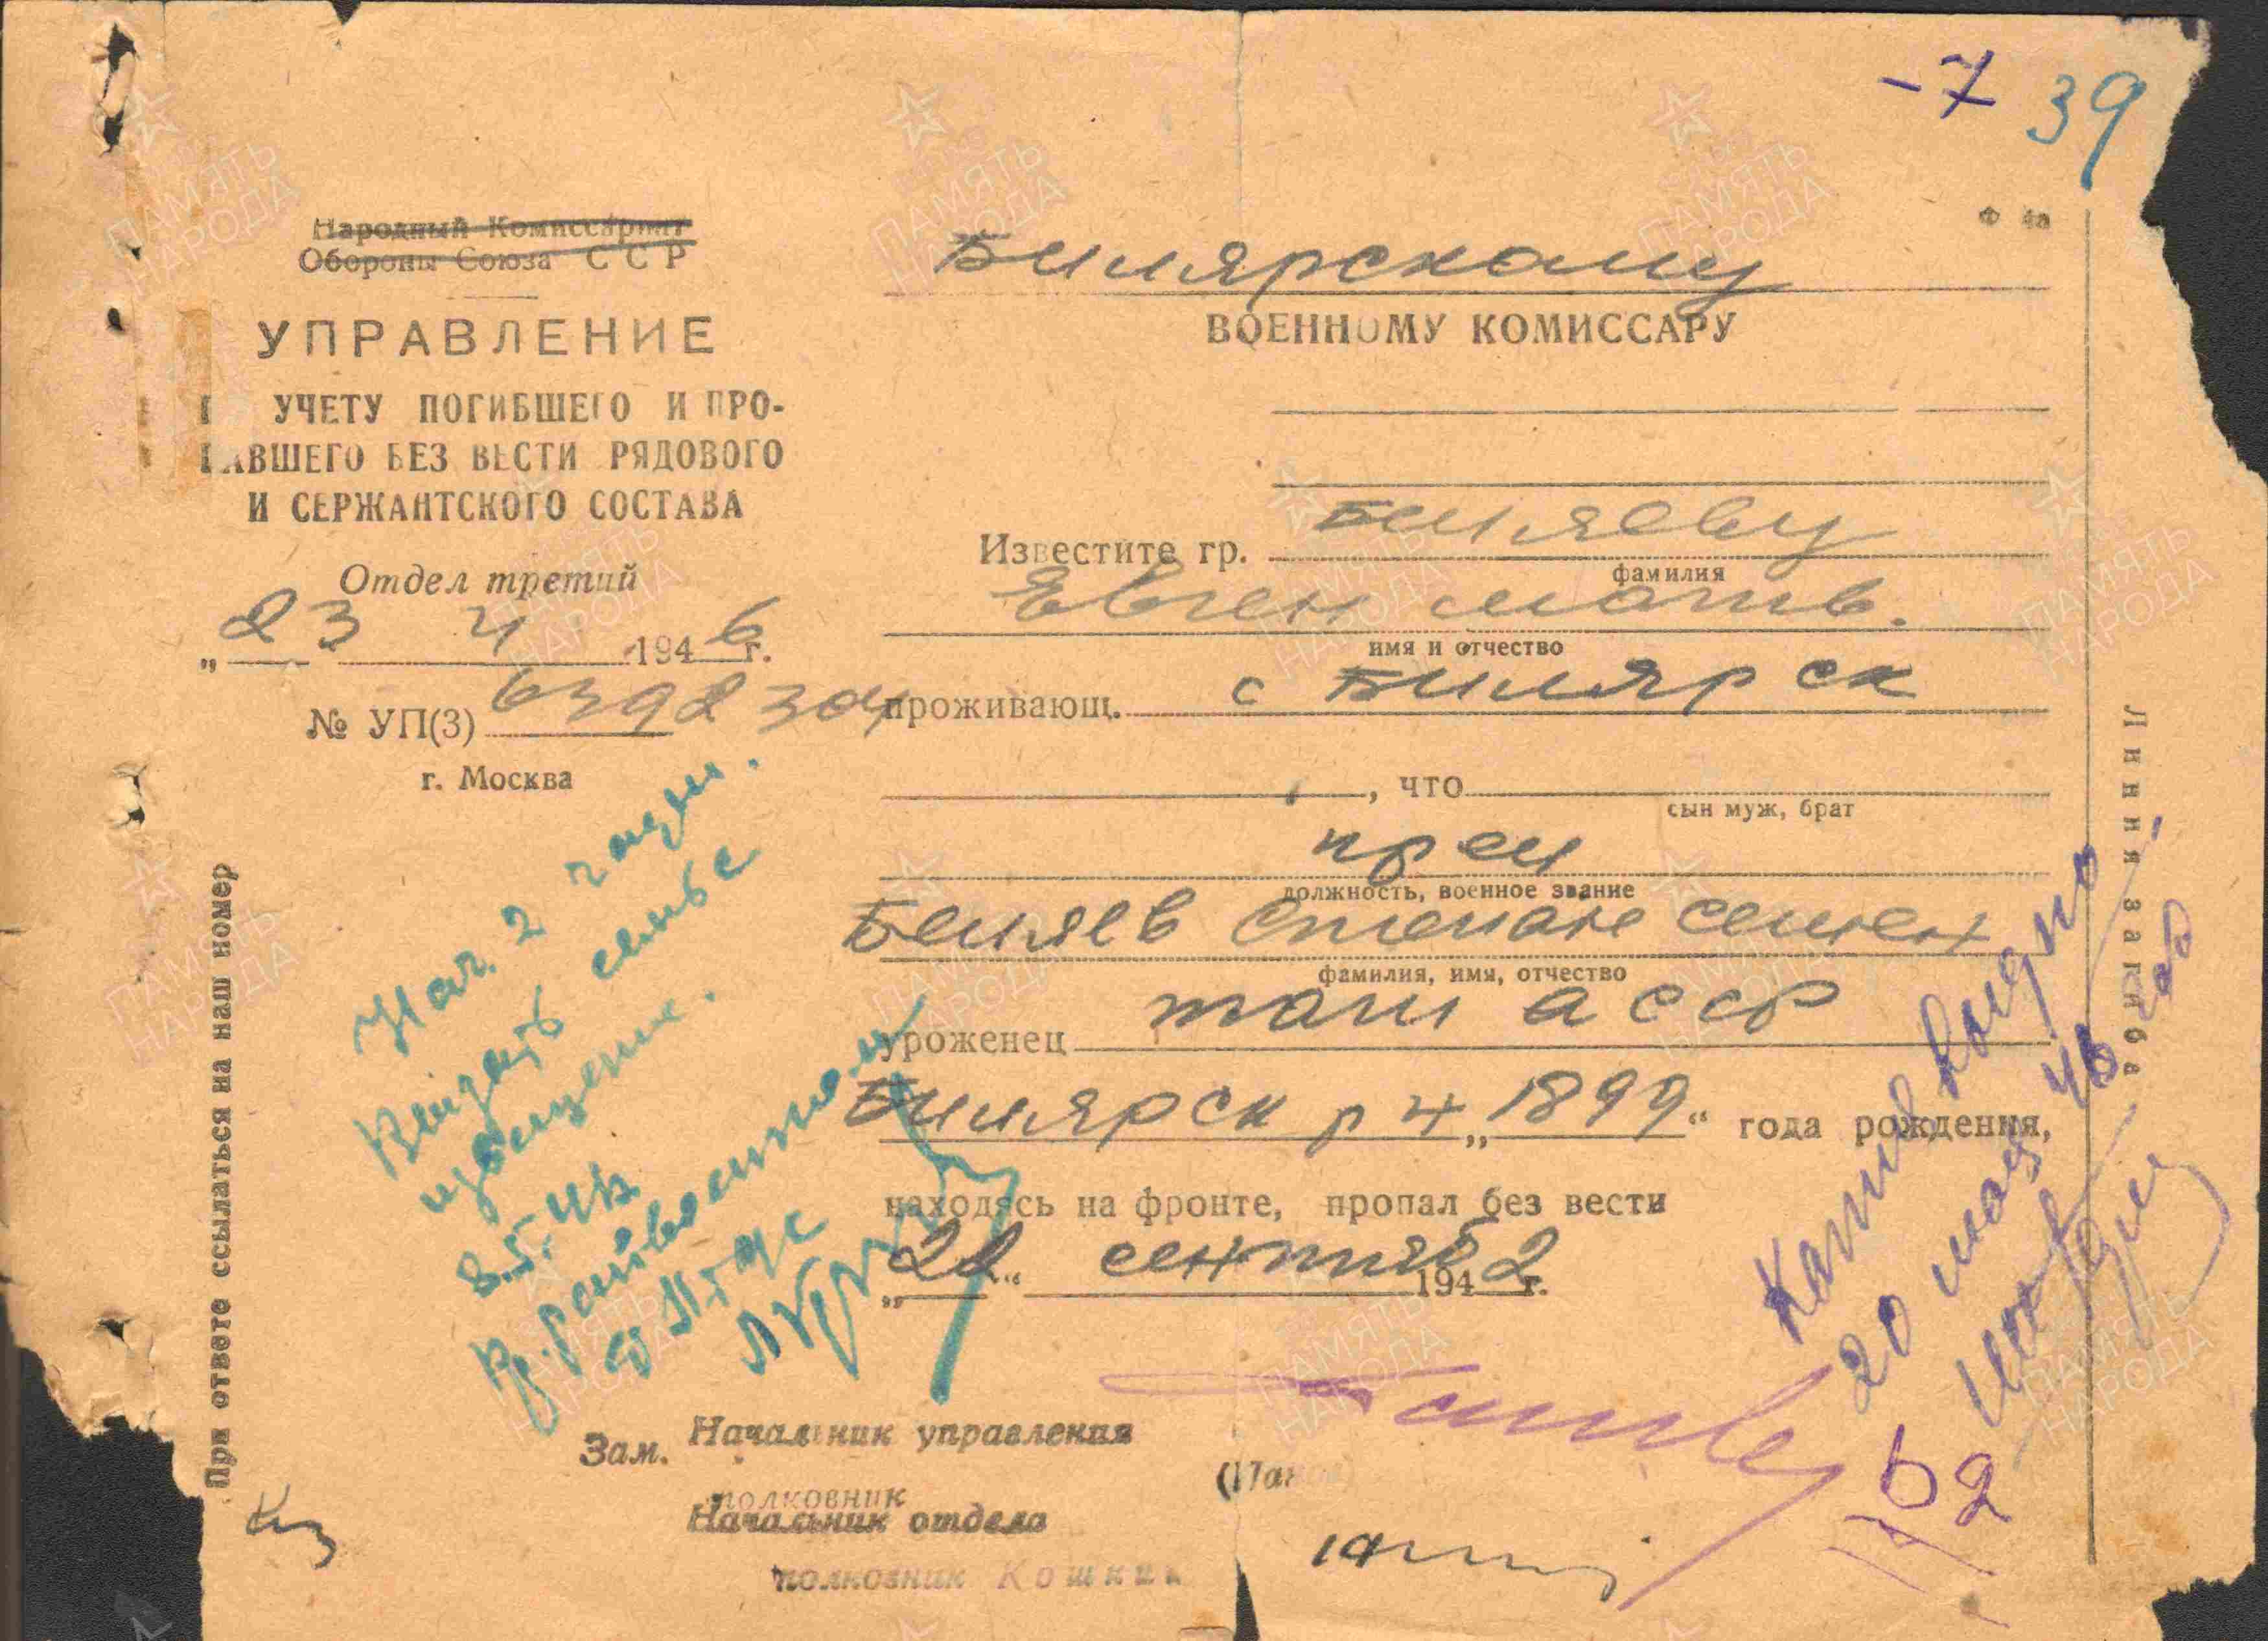 -7 39
Ф 4а
Народный Комиссариат
Обороны Союза ССР
УПРАВЛЕНИЕ
УЧЕТУ ПОГИБШЕГО И ПРО-
ПАВШЕГО БЕЗ ВЕСТИ РЯДОВОГО
И СЕРЖАНТСКОГО СОСТАВА
Отдел третий
„23 4 1946 г.
№ УП(3) 639230ч
г. Москва
При ответе ссылаться на наш номер
Билярскому
ВОЕННОМУ КОМИССАРУ
Известите гр. Биляеву
фамилия
Евген матв.
имя и отчество
проживающ. с Билярск
, что
сын муж, брат
крец
должность, военное звание
Беляев Степане Семен
фамилия, имя, отчество
уроженец тат а ССР
Билярск р н „1899“ года рождения,
находясь на фронте, пропал без вести
„22“ сентяб 1942 г.
Нач. 2 части.
Выдать семье
извещение.
8.5.46
Линия загиба
20 мая 46
Зам. Начальник управления
полковник
Начальник отдела
полковник Кошкин
62